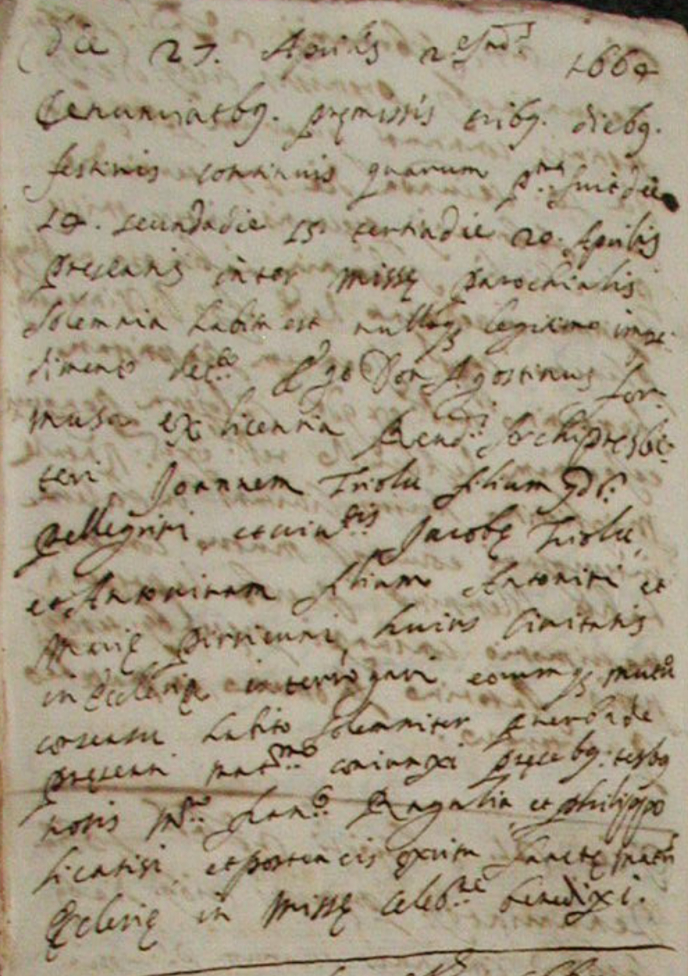 Die 27. Aprilis 2e Indis 1664
Denuntiatbq. premissis tribq. diebq.
festivis continuis quarum pma fuit die
14. secunda die 15 tertia die 20. Aprilis
presentis inter missę parochialis
solemnia habita est nulloq legitimo impe-
dimento detto Ego Don Agostinus
ex licentia Rendi Archipresbi-
teri Joannem Triolu filium qd.
pellegrini et viventis Jacobę Triolu
et Antoninam filiam Antonini et
Marię huius Civitatis
in Ecclesia interrogavi eorumq mutuo
consensu habito solemniter per verba de
presenti matmo coniunxi presebq. testbq
notis Mro Franco Ragalia et philippo
licatisi et postea eis ex ritu sanctę matris
Ecclesię in missę celebne benedixi.